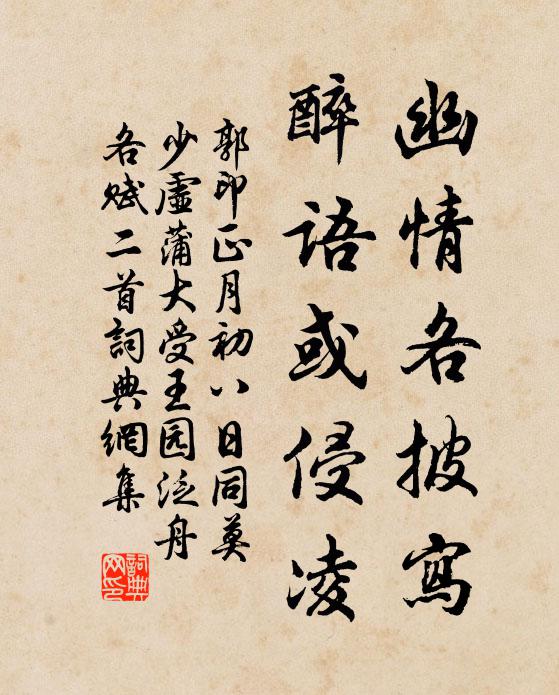 幽情各披寫
醉語或侵凌
郭印正月初八日同莫
少虛蒲大受王园泛舟
各赋二首詞典網集
詞典網印